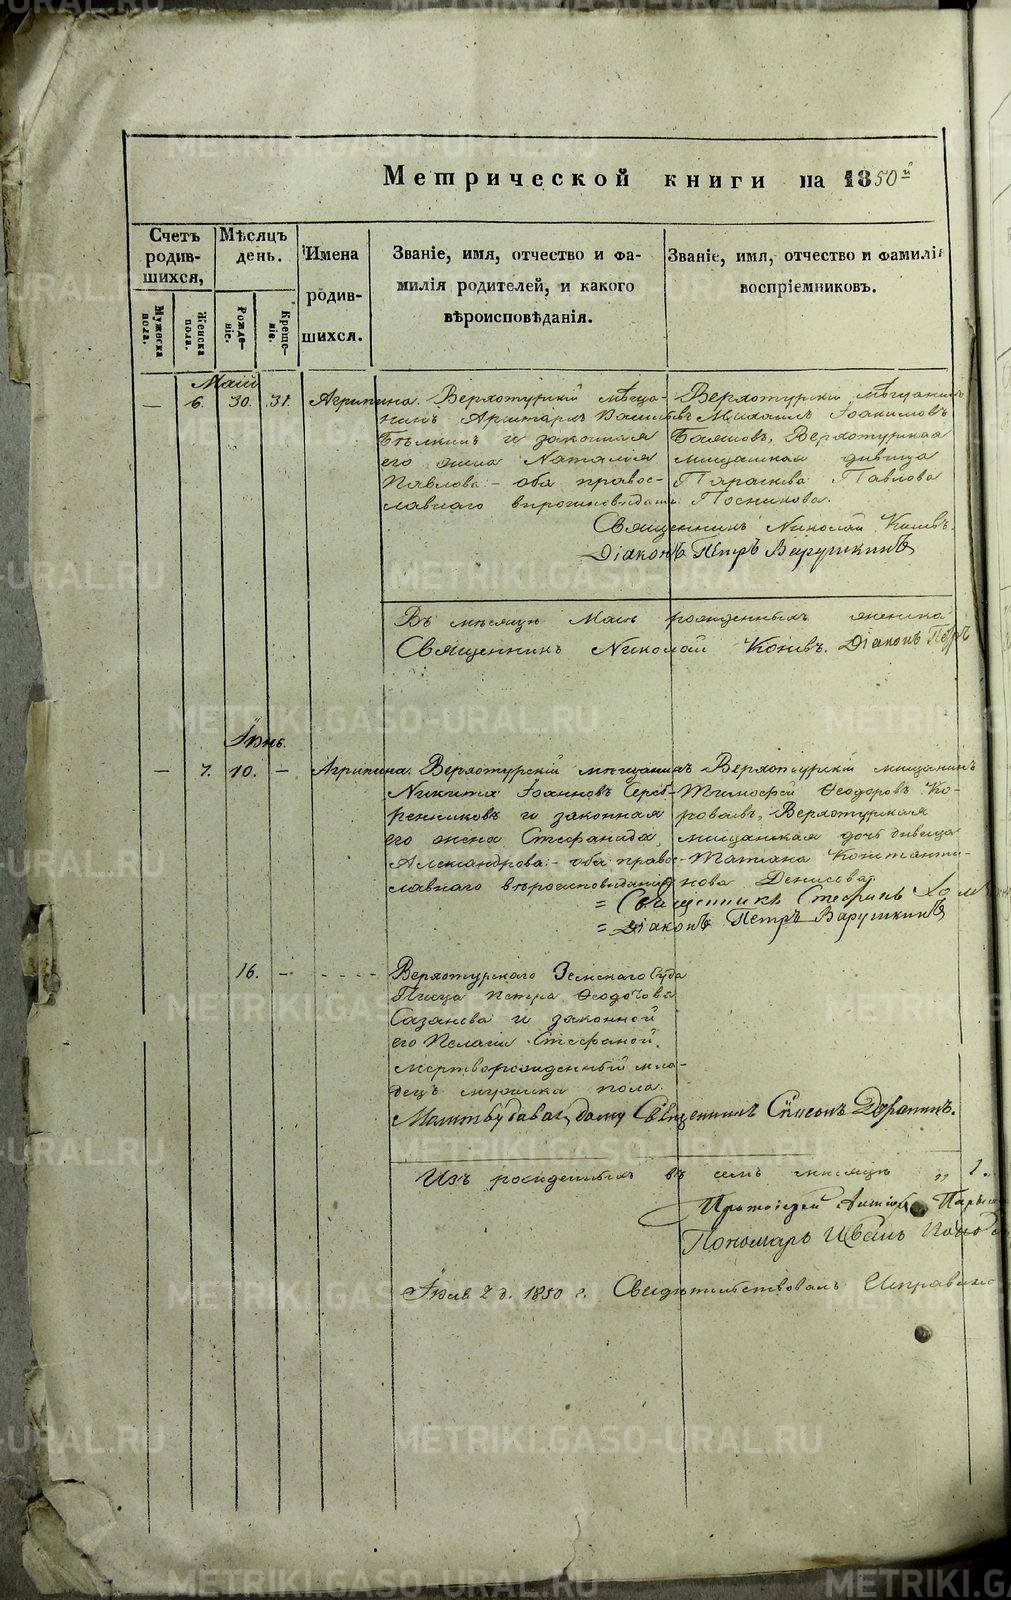 Метрической книги на 1850й
Счетъ родив-шихся,
Мѣсяцъ день.
Имена родив-шихся.
Званіе, имя, отчество и фа-милія родителей, и какого вѣроисповѣданія.
Званіе, имя, отчество и фамилія воспріемниковъ.
Мужеска пола.
Женска пола.
Рожде-ніе.
Креще-ніе.
Маій
— 6. 30. 31. Агрипина.
Верхотурскій мѣща-
нинъ Аристархъ
Бѣлкинъ и законная
его жена Наталія
Павлова – оба правос-
лавнаго вѣроисповѣданія.
Верхотурскій мѣщанинъ
Михаилъ Іоакимовъ
Верхотурская
мѣщанская дѣвица
Параскева Павлова
Посникова.
Священникъ Николай
Діаконъ Петръ Варушкинъ
Въ мѣсяцѣ Маѣ рожденныхъ женска
Священникъ Николай Діаконъ Петръ
Іюнь.
— 7. 10. — Агрипина.
Верхотурскій мѣщанинъ
Никита Іоанновъ Сереб-
ренниковъ и законная
его жена Стефанида
Александрова – оба правос-
лавнаго вѣроисповѣданія
Верхотурскій мѣщанинъ
Тимофей Ѳеодоровъ Ко-
роваевъ, Верхотурская
мѣщанская дочь дѣвица
Татіана Константи-
нова Денисова
= Священникъ Стефанъ
= Діаконъ Петръ Варушкинъ
16. — - - - -
Верхотурскаго Земскаго Суда
Писца Петра Ѳеодорова
Сазанова и законной
его Пелагіи Стефаной.
мертворожденный мла-
денецъ мужеска пола.
Молитву давалъ дому Священникъ Симеонъ
Изъ рожденныхъ въ семъ мѣсяцѣ „ 1 „
Протоіерей
Пономарь Иванъ
Іюля 2 д. 1850 г. Свидѣтельствовалъ
METRIKI.GASO-URAL.RU